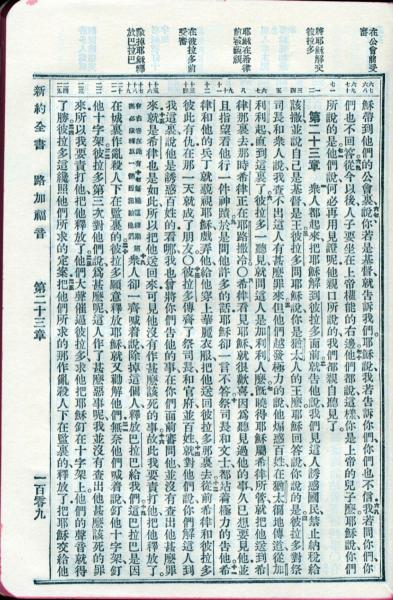 在公會前受審
將耶穌解交彼拉多
耶穌在希律前被藐視
在彼拉多前受審
除掉耶穌釋放巴拉巴
穌帶到他們的公會裏說你若是基督就告訴我們耶穌說我若告訴你們你們也不信我若問你們你
們也不回答從今以後人子要坐在上帝權能的右邊他們都說這樣你是上帝的兒子麼耶穌說你們
所說的是他們說何必再用見證呢他親口所說的我們都親自聽見了
第二十三章 衆人都起來把耶穌解到彼拉多面前就告他說我們見這人誘惑國民禁止納稅給
該撒並說自己是基督是王彼拉多問耶穌說你是猶太人的王麼耶穌回答說你說的是彼拉多對祭
司長和衆人說我查不出這人有甚麼罪來但他們越發極力的說他煽惑百姓在猶太徧地傳道從加
利利起直到這裏了彼拉多一聽見就問這人是加利利人麼旣曉得耶穌屬希律所管就把他送到希
律那裏去那時希律正在耶路撒冷○希律看見耶穌就很歡喜因爲聽見過他的事久已想要見他並
且指望看他行一件神蹟於是問他許多的話耶穌却一言不答祭司長和文士都站着極力的告他希
律和他的兵丁就藐視耶穌戲弄他給他穿上華麗衣服把他送回彼拉多那裏去從前希律和彼拉多
彼此有仇在那一天就成了朋友○彼拉多傳齊了祭司長和官府並百姓就對他們說你們解這人到
我這裏說他是誘惑百姓的看哪我也曾將你們告他的事在你們面前審問他並沒有查出他甚麼罪
來就是希律也是如此所以把他送回來可見他沒有作甚麼該死的事故此我要責打他把他釋放了
衆人卻一齊喊着說除掉這個人釋放巴拉巴給我們這巴拉巴是因
在城裏作亂殺人下在監裏的彼拉多願意釋放耶穌就又勸解他們無奈他們喊着說釘他十字架釘
他十字架彼拉多第三次對他們說爲甚麼呢這人作了甚麼惡事呢我並沒有查出他甚麼該死的罪
來所以我要責打他把他釋放了他們大聲催逼彼拉多求他把耶穌釘在十字架上他們的聲音就得
了勝彼拉多這纔照他們所求的定案把他們所求的那作亂殺人下在監裏的釋放了把耶穌交給他
新約全書 路加福音 第二十三章 一百零九